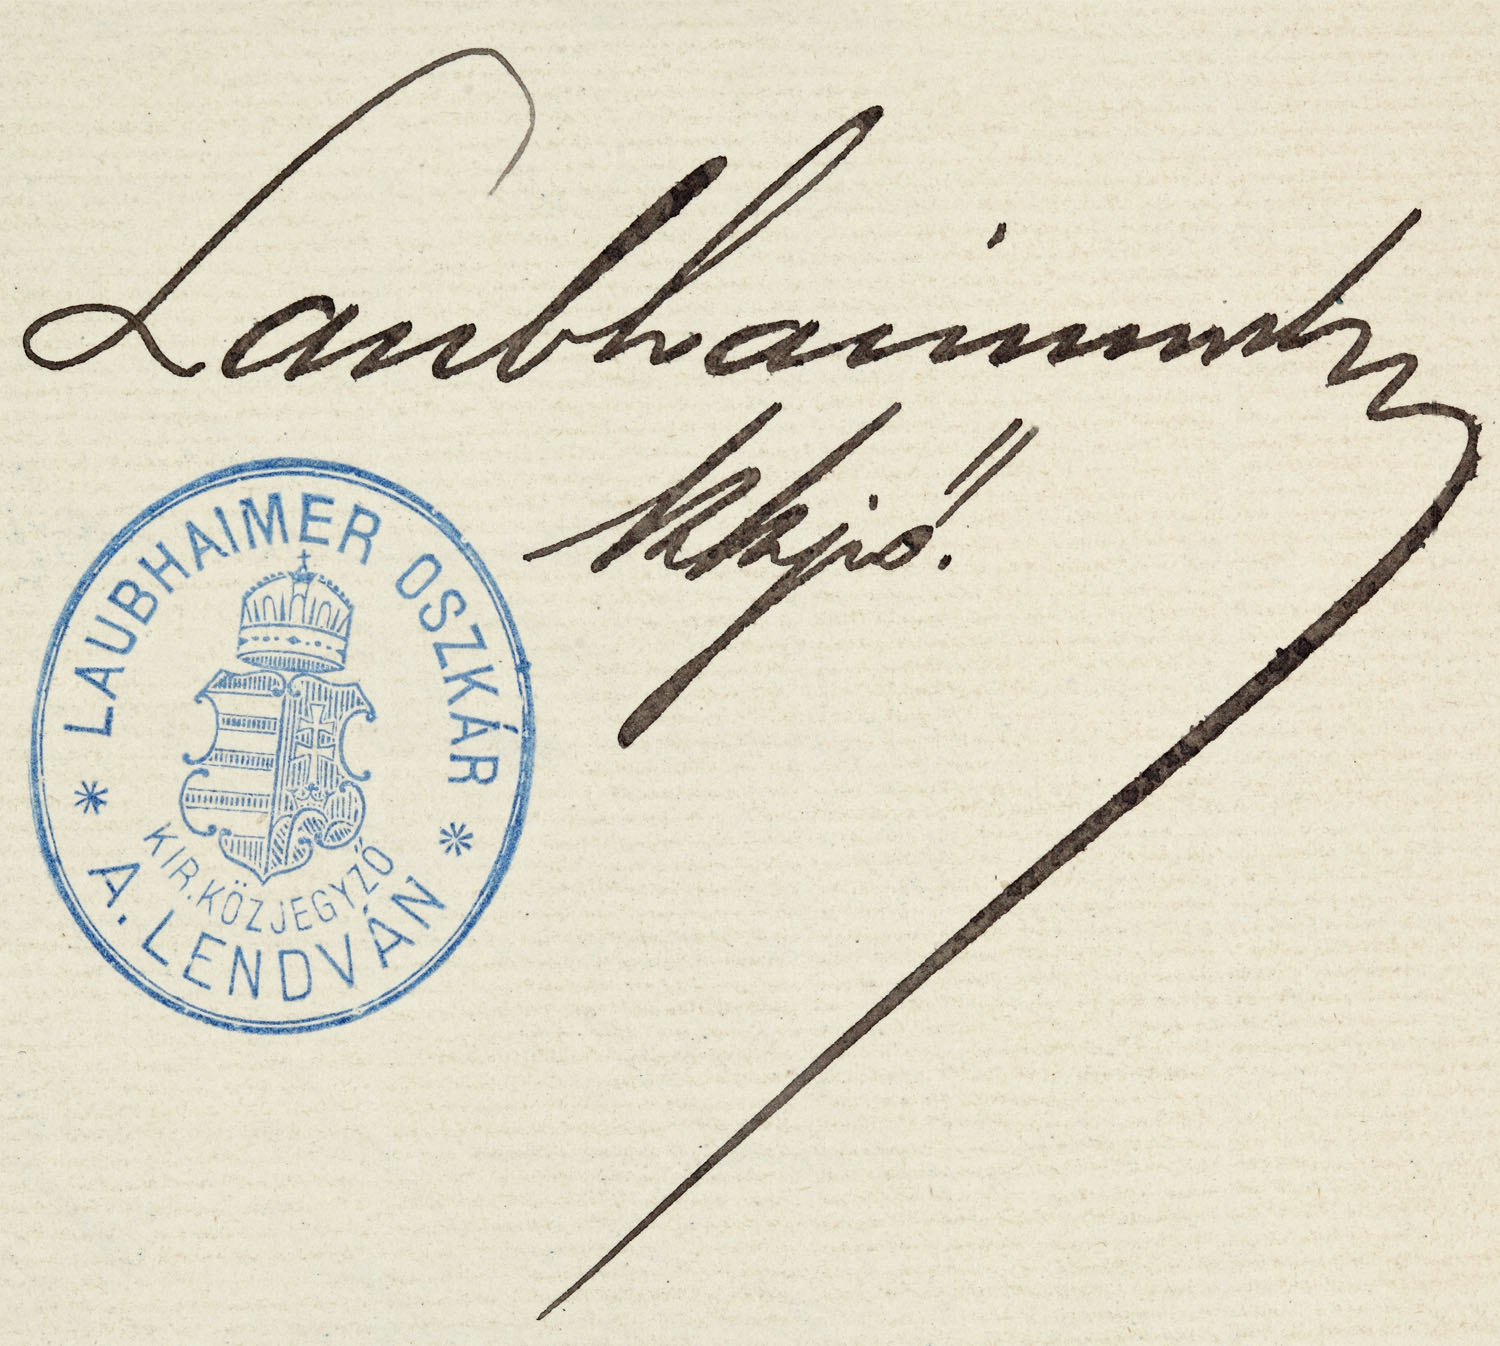 Laubhaimer
kkjző.
LAUBHAIMER OSZKÁR
KIR. KÖZJEGYZŐ
* A. LENDVÁN *